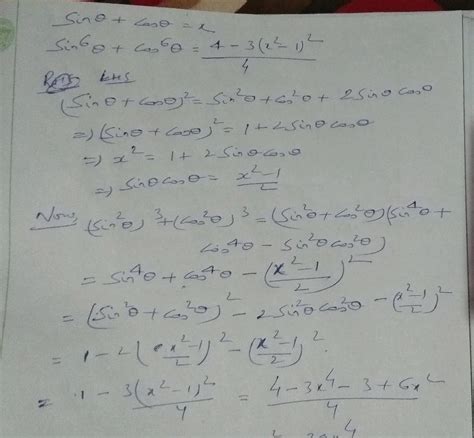 Sinθ + cosθ = x
Sin⁶θ + cos⁶θ = (4 - 3(x²-1)²)/4
LHS
(Sinθ + cosθ)² = Sin²θ + cos²θ + 2Sinθ cosθ
=> (Sinθ + cosθ)² = 1 + 2Sinθ cosθ
=> x² = 1 + 2Sinθ cosθ
=> Sinθ cosθ = (x²-1)/2
Now, (Sin²θ)³ + (cos²θ)³ = (Sin²θ + cos²θ)(Sin⁴θ +
cos⁴θ - Sin²θ cos²θ)
= Sin⁴θ + cos⁴θ - ((x²-1)/2)²
= (Sin²θ + cos²θ)² - 2Sin²θ cos²θ - ((x²-1)/2)²
= 1 - 2((x²-1)/2)² - ((x²-1)/2)²
= 1 - 3(x²-1)²/4 = (4 - 3x⁴ - 3 + 6x²)/4